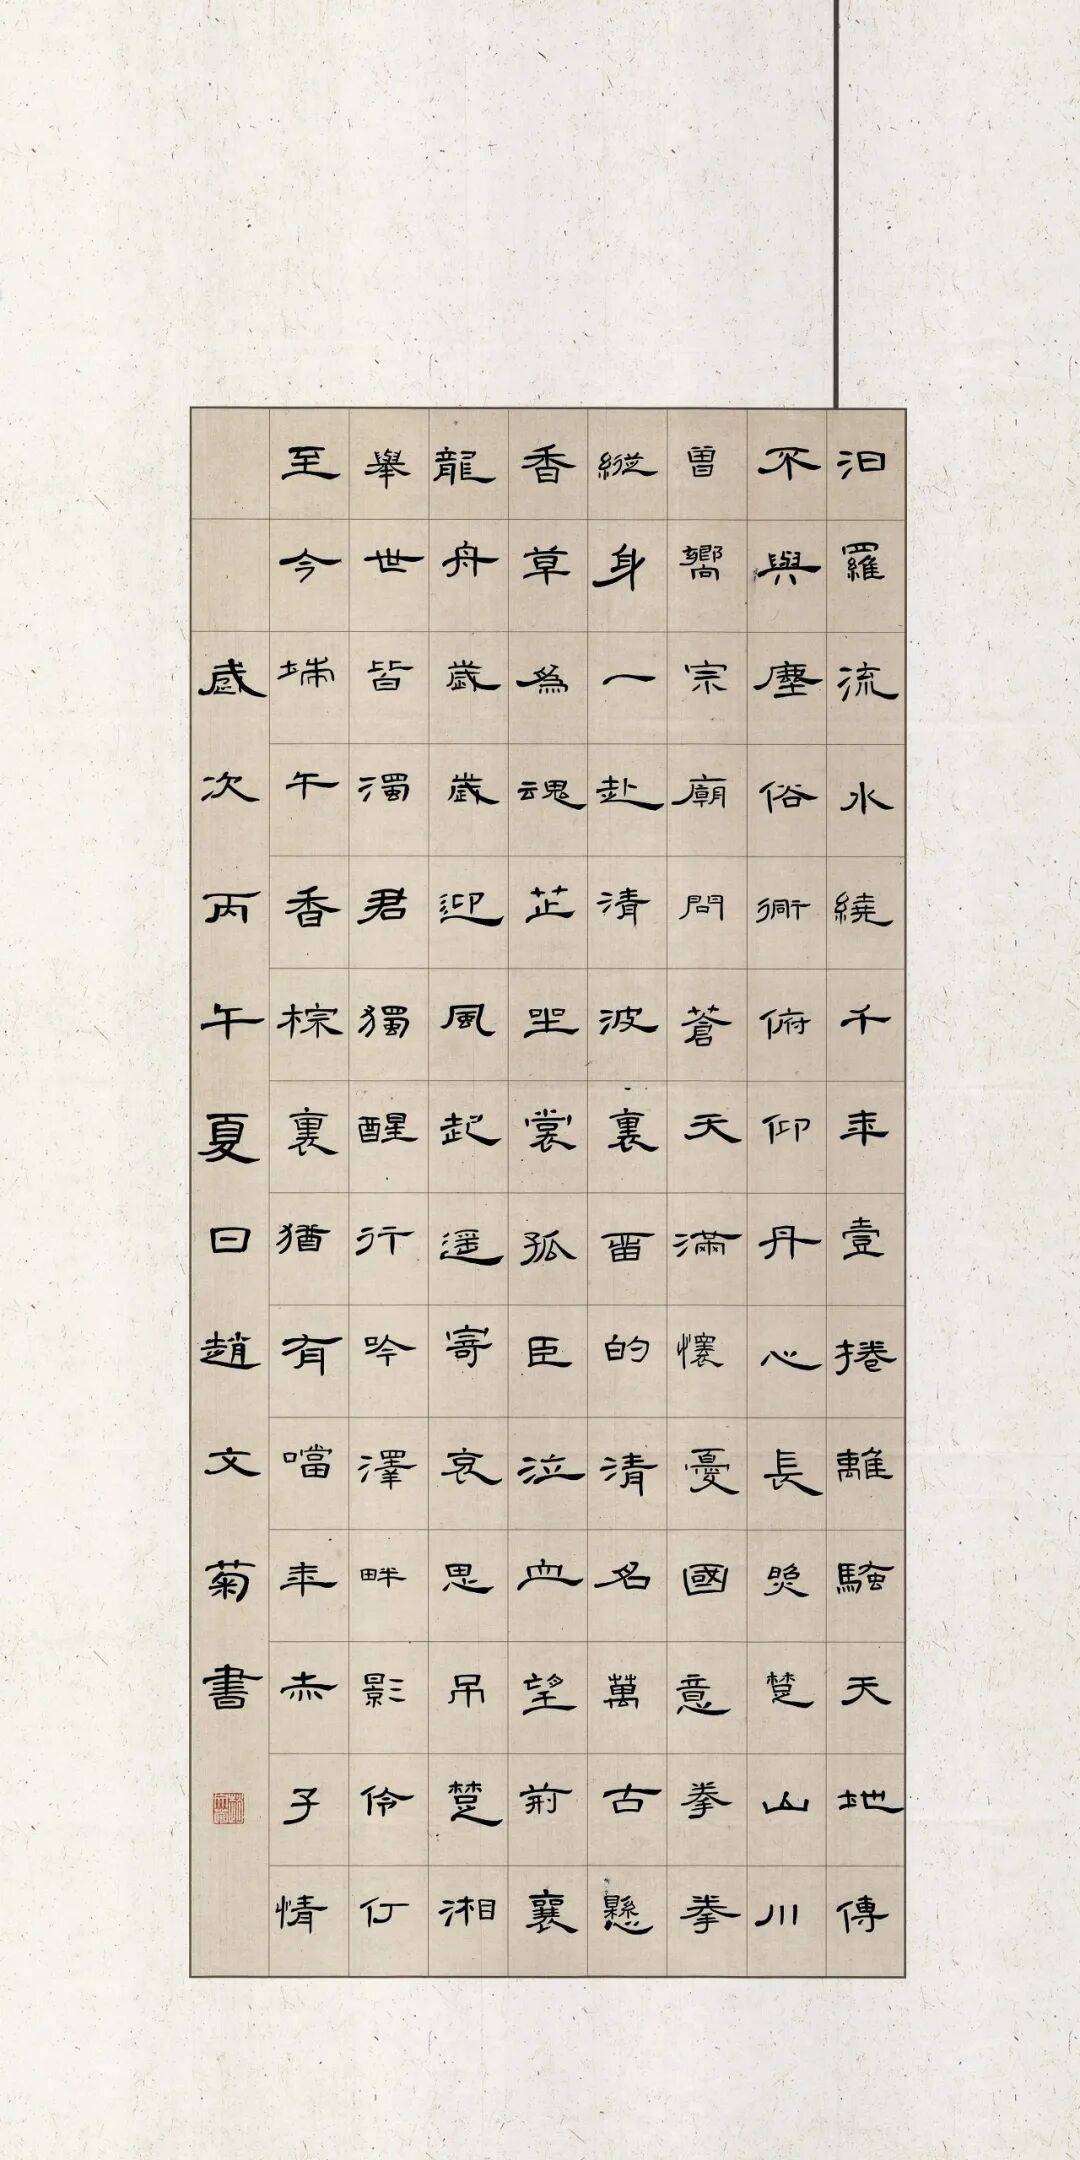 汨羅流水繞千年壹捲離騷天地傳
不與塵俗同俯仰丹心長照楚山川
曾嚮宗廟問蒼天滿懷憂國意拳拳
縱身一赴清波裏留的清名萬古懸
香草為魂芷坐裳孤臣泣血望荊襄
龍舟歲歲迎風起遥寄哀思吊楚湘
舉世皆濁君獨醒行吟澤畔影伶仃
至今端午香棕裏猶有噹年赤子情
歲次丙午夏日趙文菊書